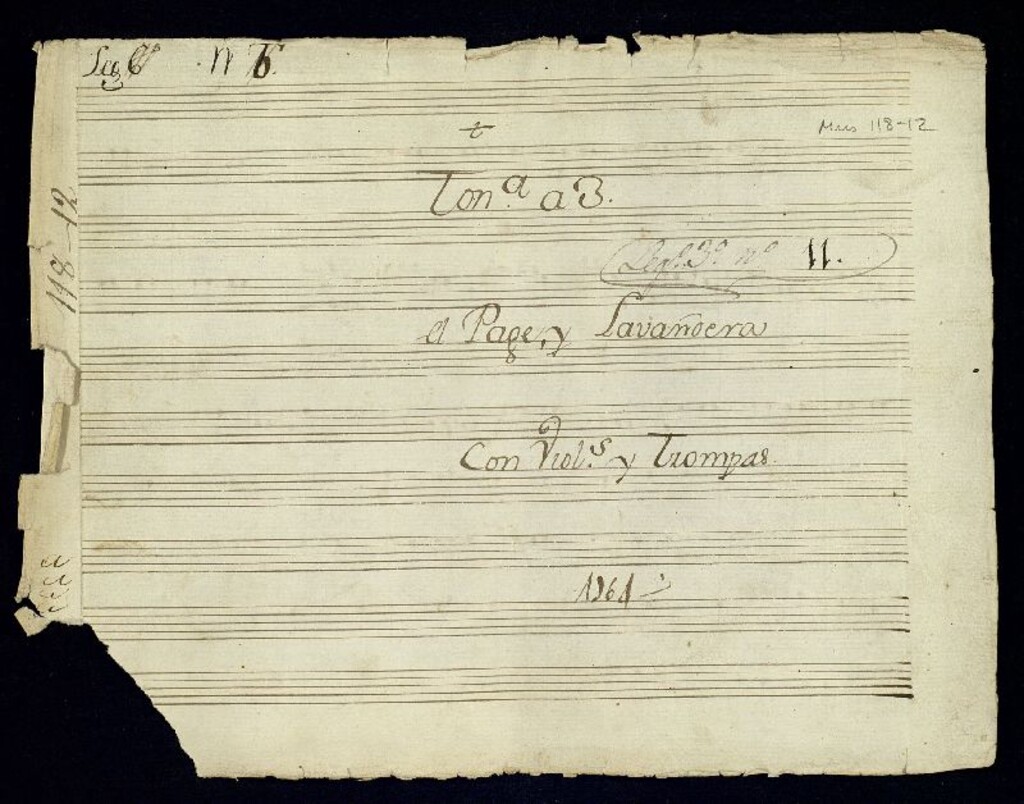 Leg 6º n 6.
Mus 118-12
t
Ton.ª a 3.
Leg.º 3.º nº 11.
118-12
el Page, y Lavandera
Con Viol.s y Trompas.
1764